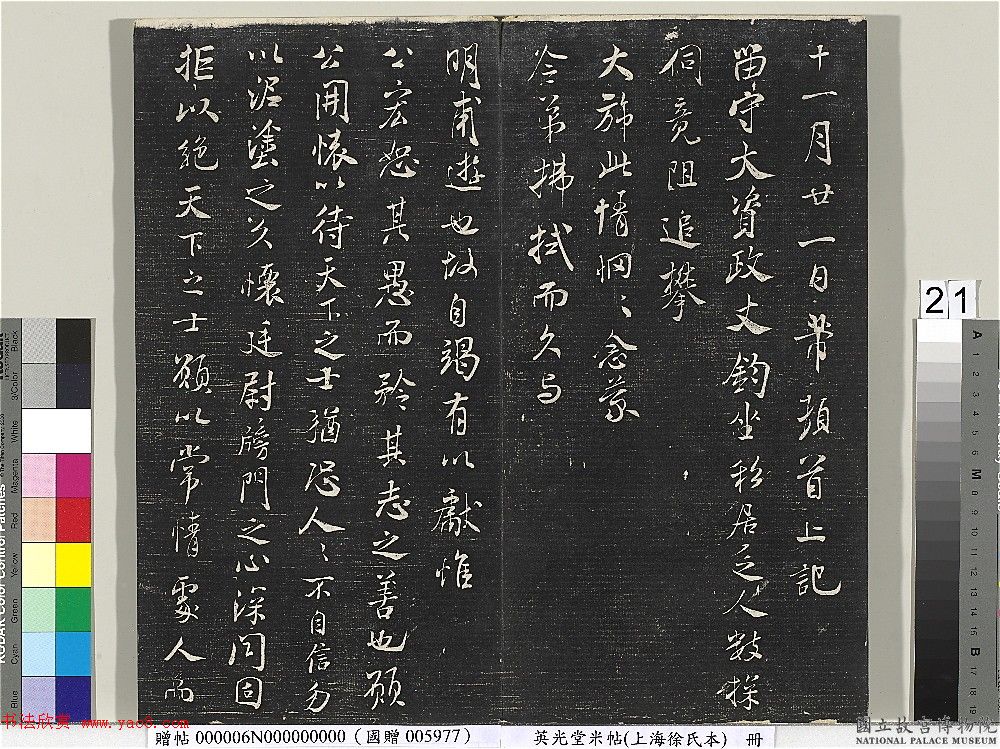 十一月廿一日芾頓首上記
留守大資政丈鈞坐移居乏人數探
伺竟阻追攀
大旆此情惘〻念蒙
令弟拂拭而久与
明甫遊也故自竭有以獻惟
公宏恕其愚而矜其志之善也願
公開懷以待天下之士猶恐人〻不自信勿
以泥塗之久懷廷尉牓門之心深閉固
拒以絕天下之士願以常情處人而
21
贈帖 000006N000000000 (國贈 005977)
英光堂米帖(上海徐氏本) 冊
國立故宮博物院
NATIONAL PALACE MUSEUM
书法欣赏 www.yac8.com
KODAK Color Control Patches
Black
3/Color
White
Magenta
Red
Yellow
Green
Cyan
Blue
A
1
2
3
4
5
6
M
8
9
10
11
12
13
14
15
B
17
18
19